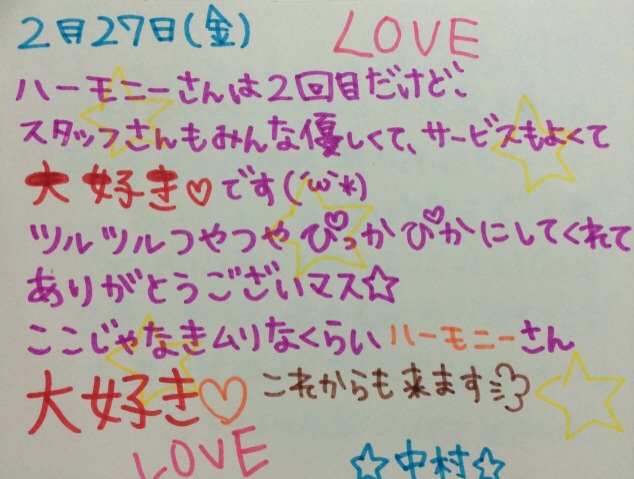 2月27日(金) LOVE
ハーモニーさんは2回目だけど、
スタッフさんもみんな優しくて、サービスもよくて
大好き♡です(´ω`*)
ツルツルつやつやぴっかぴかにしてくれて
ありがとうございマス☆
ここじゃなきムリなくらいハーモニーさん
大好き♡ これからも来ます
LOVE ☆中村☆